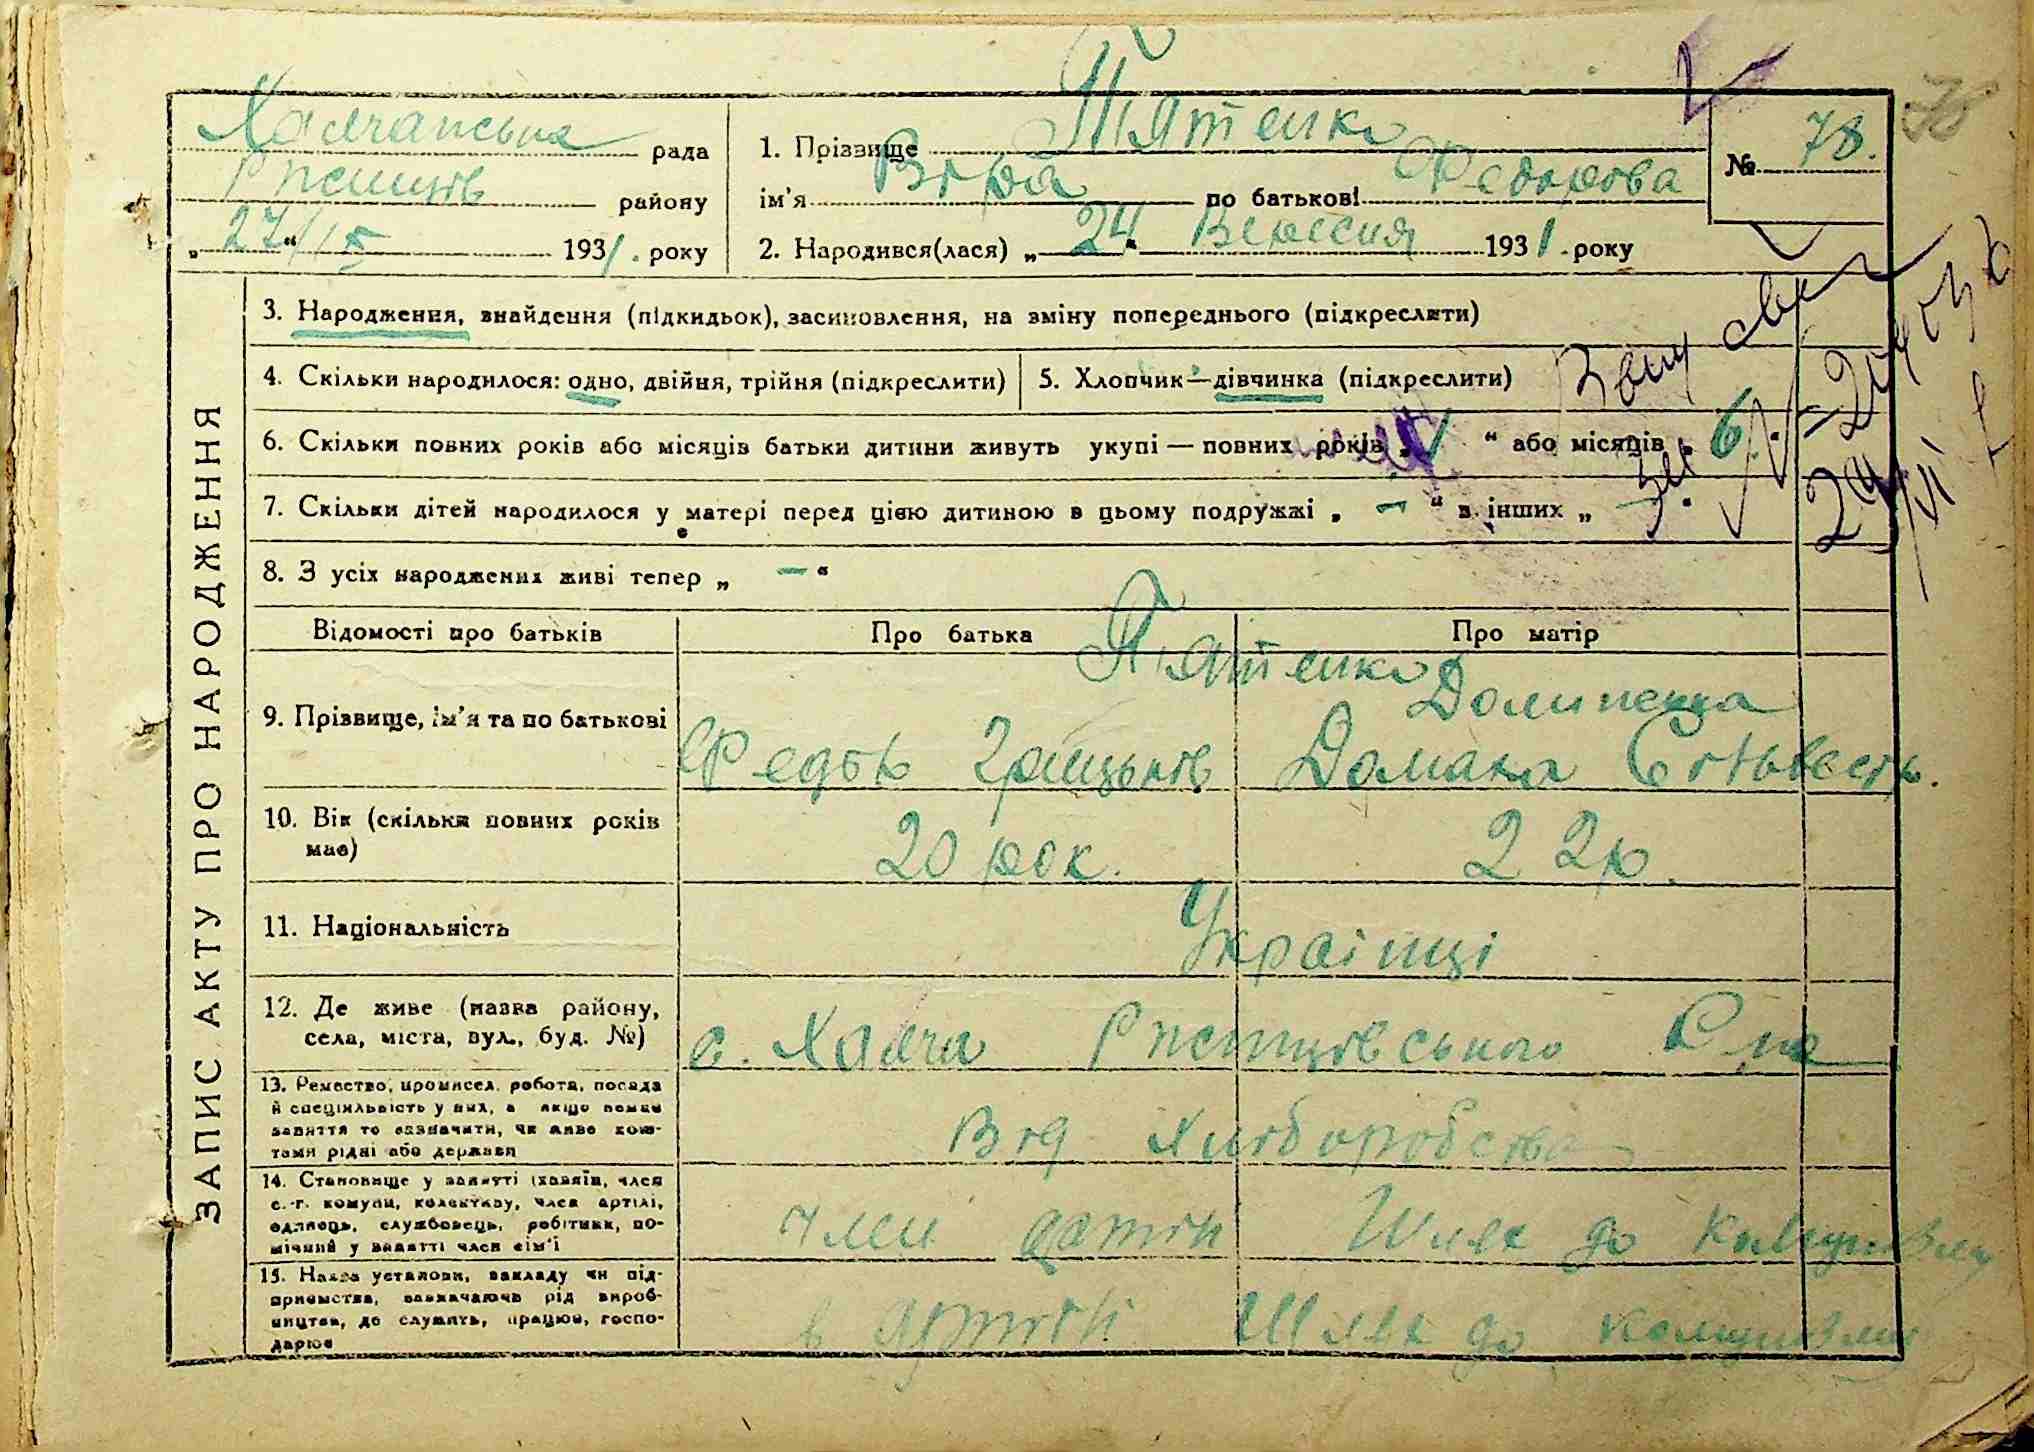 Халчанська рада
Ржищів району
„27“/IX 1931. року
1. Прізвище П'ятенко
ім'я Віра по батькові Федорова
2. Народився(лася) „24“ Вересня 1931. року
№ 78.
78
ЗАПИС АКТУ ПРО НАРОДЖЕННЯ
3. Народження, знайдення (підкидьок), засиновлення, на зміну попереднього (підкреслити)
4. Скільки народилося: одно, двійня, трійня (підкреслити)
5. Хлопчик—дівчинка (підкреслити)
6. Скільки повних років або місяців батьки дитини живуть укупі — повних років „1“ або місяців „6“
7. Скільки дітей народилося у матері перед цією дитиною в цьому подружжі „—“ в інших „—“
8. З усіх народжених живі тепер „—“
Відомості про батьків Про батька Про матір
П'ятенко
9. Прізвище, ім'я та по батькові
Долиненца
Федько Грицьків Домаха Сильвестр.
10. Вік (скільки повних років має)
20 рок. 22р.
11. Національність
Українці
12. Де живе (назва району, села, міста, вул., буд. №)
с. Халча Ржищівського Р-на
13. Ремество, промисел, робота, посада
й спеціяльність у них, а якщо немає
заняття то зазначити, чи живе кош-
тами рідні або держави
Від Хліборобства
14. Становище у занятті (хазяїн, член
с.-г. комуни, колективу, член артілі,
одинець, службовець, робітник, по-
мічний у занятті член сім'ї
член артіли Шлях до комунізму
15. Назва установи, закладу чи під-
приємства, зазначаючи рід вироб-
ництва, де служить, працює, госпо-
дарює
в артілі Шлях до комунізму